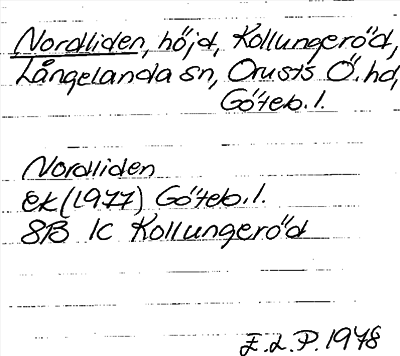 Nordliden, höjd, Kollungeröd,
Långelanda sn, Orusts Ö. hd,
Göteb. l.
Nordliden
Ek (1977) Göteb. l.
8B 1c Kollungeröd
E.L.P. 1978